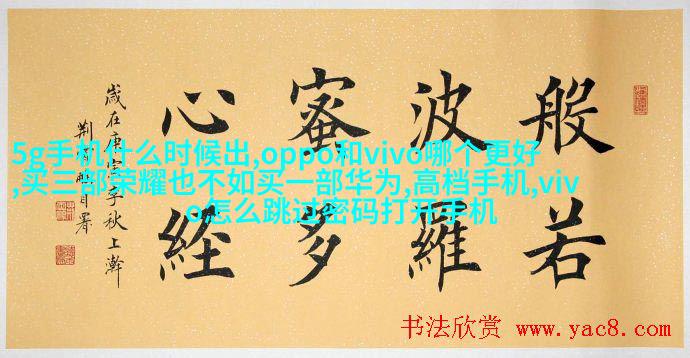 般若
波羅
蜜多
心経
歲在庚寅季秋上澣
荆霄鹏自署
5g手机什么时候出,oppo和vivo哪个更好
,买三部荣耀也不如买一部华为,高档手机,viv
o怎么跳过密码打开手机
书法欣赏 www.yac8.com